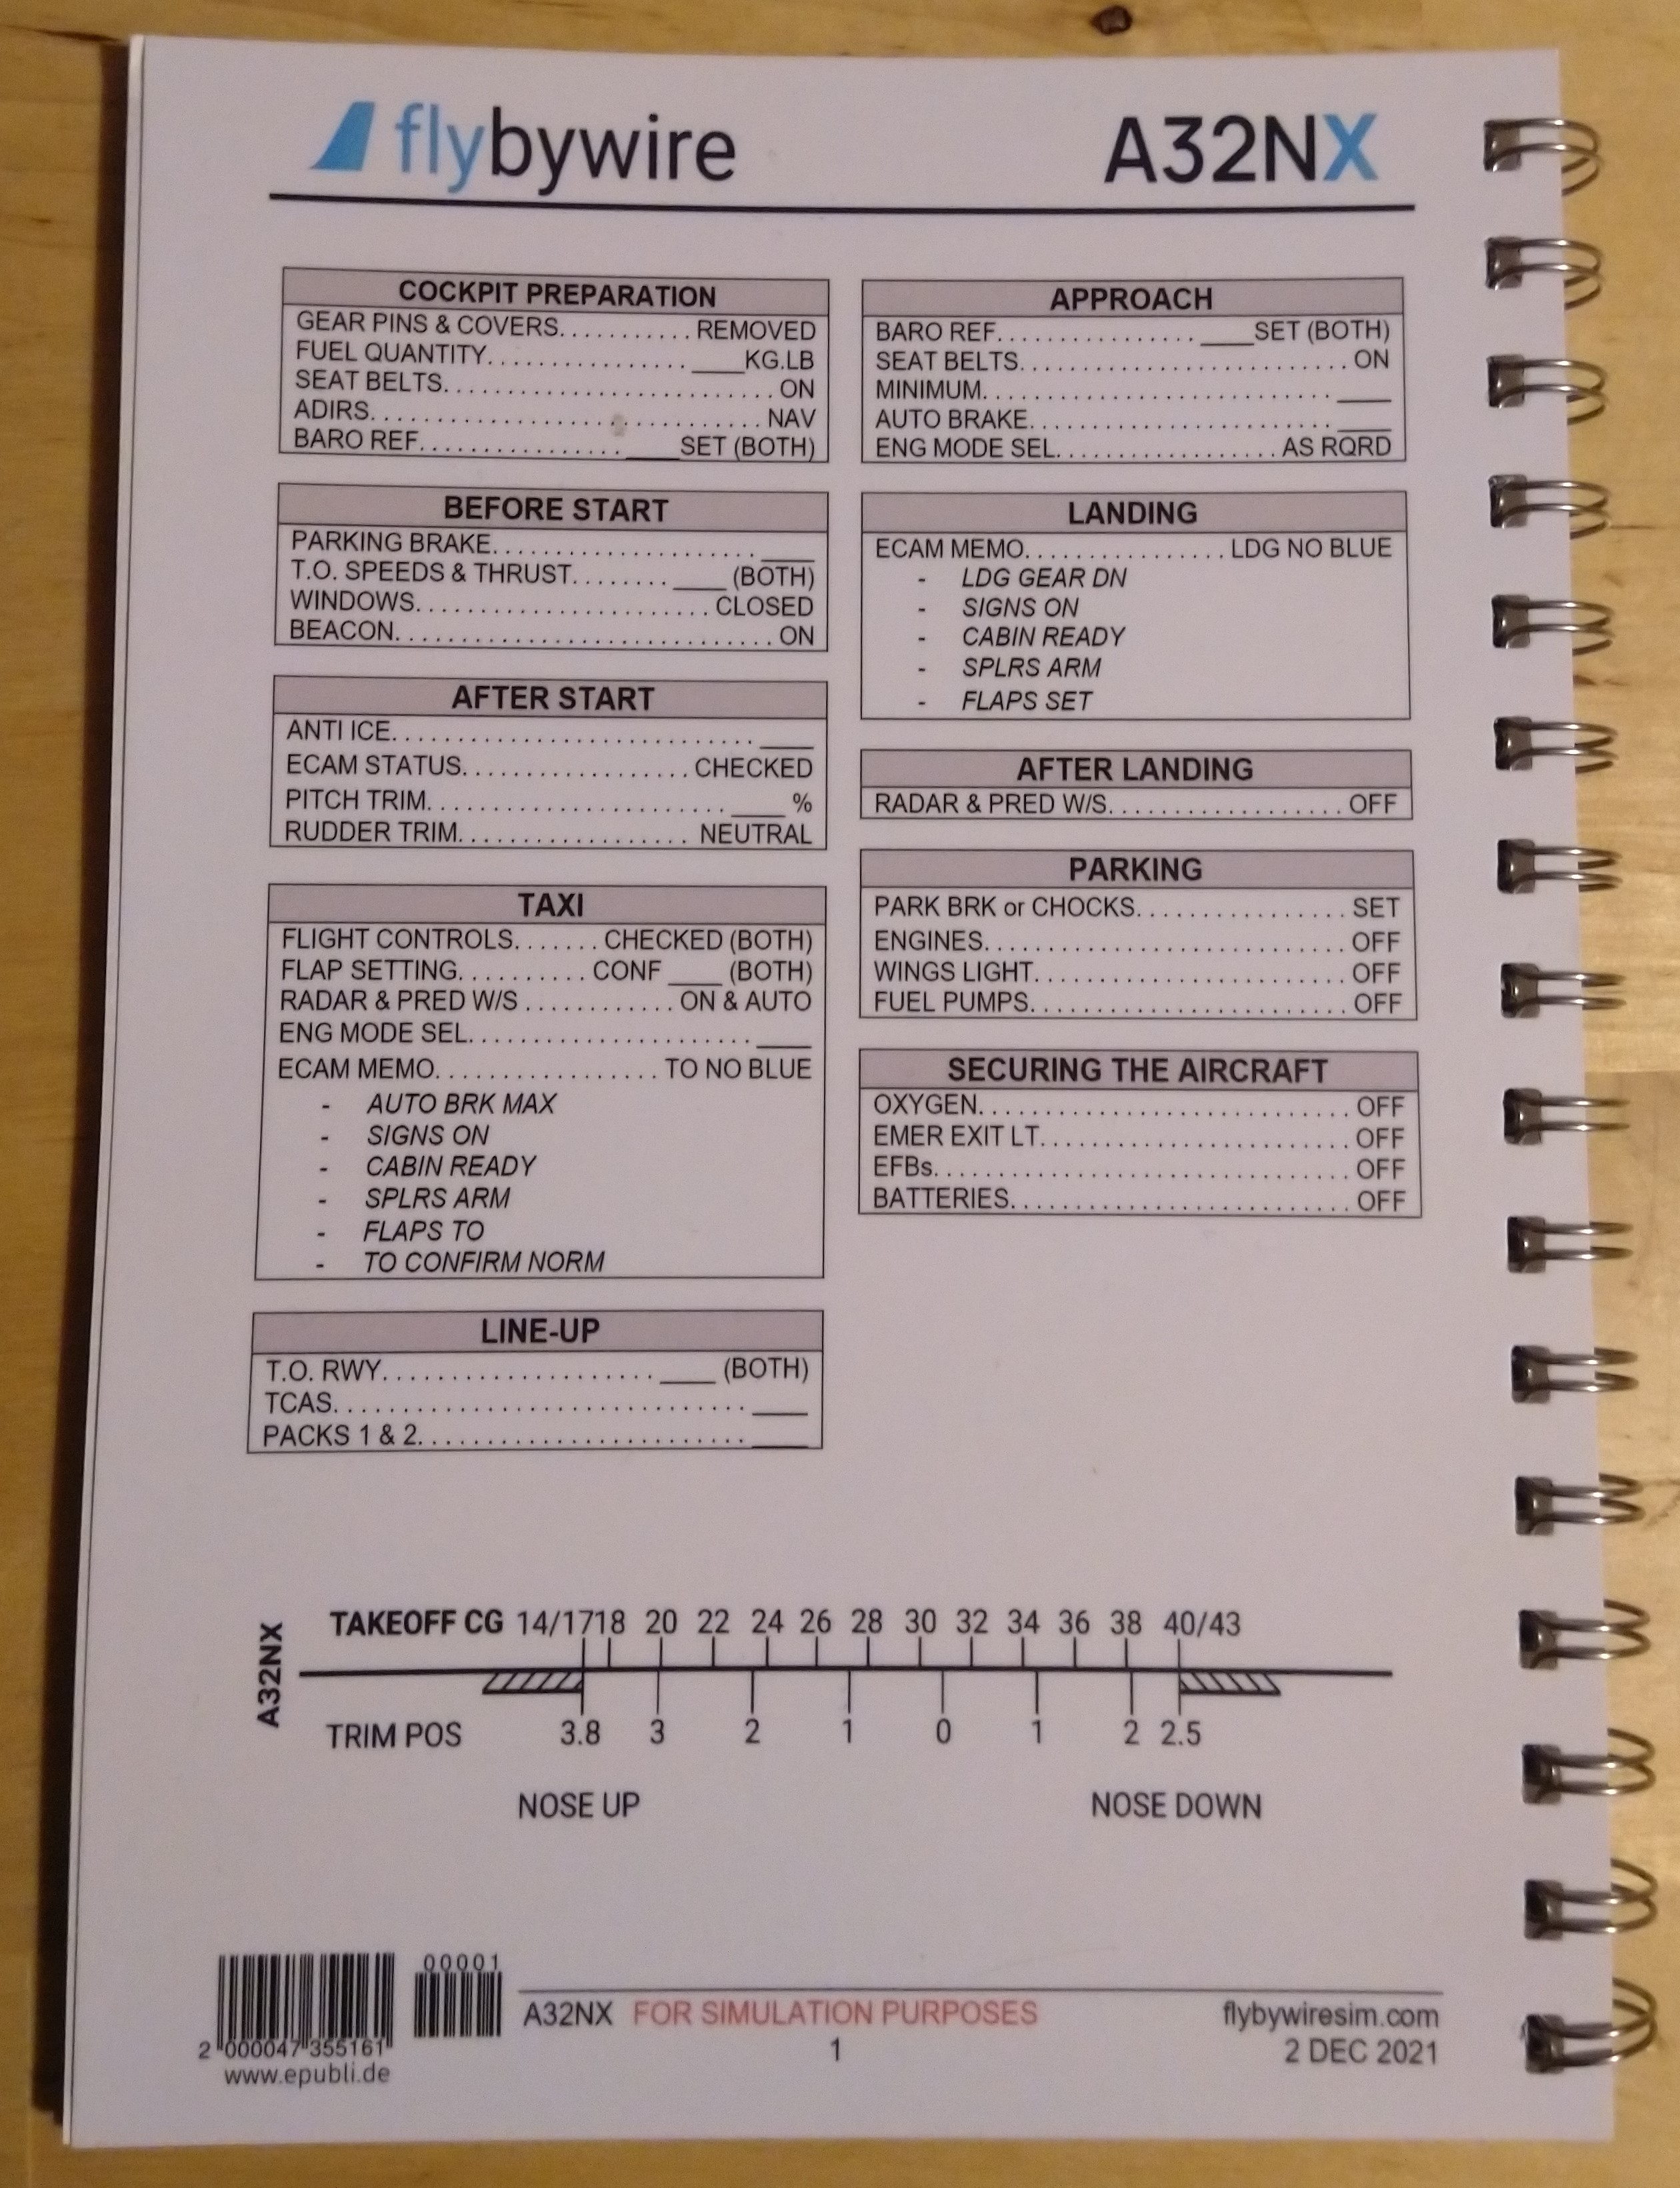 flybywire A32NX
COCKPIT PREPARATION
GEAR PINS & COVERS........... REMOVED
FUEL QUANTITY................. ____KG.LB
SEAT BELTS............................ ON
ADIRS................................. NAV
BARO REF................ ____SET (BOTH)
BEFORE START
PARKING BRAKE...................... ____
T.O. SPEEDS & THRUST........ ____ (BOTH)
WINDOWS......................... CLOSED
BEACON................................ ON
AFTER START
ANTI ICE............................. ____
ECAM STATUS.................. CHECKED
PITCH TRIM........................ ____ %
RUDDER TRIM................... NEUTRAL
TAXI
FLIGHT CONTROLS....... CHECKED (BOTH)
FLAP SETTING.......... CONF ____ (BOTH)
RADAR & PRED W/S ............ ON & AUTO
ENG MODE SEL........................ ____
ECAM MEMO................. TO NO BLUE
- AUTO BRK MAX
- SIGNS ON
- CABIN READY
- SPLRS ARM
- FLAPS TO
- TO CONFIRM NORM
LINE-UP
T.O. RWY...................... ____ (BOTH)
TCAS.................................. ____
PACKS 1 & 2.......................... ____
APPROACH
BARO REF................. ____SET (BOTH)
SEAT BELTS............................ ON
MINIMUM............................. ____
AUTO BRAKE......................... ____
ENG MODE SEL.................. AS RQRD
LANDING
ECAM MEMO................ LDG NO BLUE
- LDG GEAR DN
- SIGNS ON
- CABIN READY
- SPLRS ARM
- FLAPS SET
AFTER LANDING
RADAR & PRED W/S................... OFF
PARKING
PARK BRK or CHOCKS................ SET
ENGINES.............................. OFF
WINGS LIGHT......................... OFF
FUEL PUMPS.......................... OFF
SECURING THE AIRCRAFT
OXYGEN.............................. OFF
EMER EXIT LT......................... OFF
EFBs.................................. OFF
BATTERIES............................ OFF
A32NX
TAKEOFF CG 14/17 18 20 22 24 26 28 30 32 34 36 38 40/43
TRIM POS 3.8 3 2 1 0 1 2 2.5
NOSE UP NOSE DOWN
00001
2 000047 355161
www.epubli.de
A32NX FOR SIMULATION PURPOSES flybywiresim.com
1 2 DEC 2021